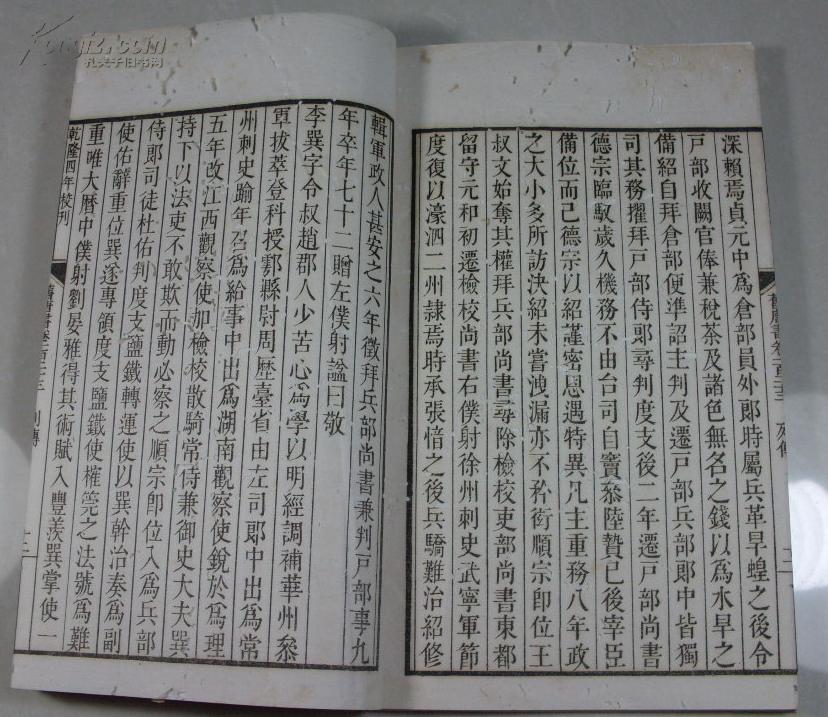 深賴焉貞元中為倉部員外郎時屬兵革旱蝗之後令
戸部收闕官俸兼稅茶及諸色無名之錢以為水旱之
備紹自拜倉部便準詔主判及遷戸部兵部郎中皆獨
司其務擢拜戸部侍郎尋判度支後二年遷戸部尚書
德宗臨馭歲久機務不由台司自竇叅陸贄已後宰臣
備位而已德宗以紹謹密恩遇特異凡主重務八年政
之大小多所訪決紹未嘗洩漏亦不矜衒順宗卽位王
叔文始奪其權拜兵部尚書尋除檢校吏部尚書東都
留守元和初遷檢校尚書右僕射徐州刺史武寧軍節
度復以濠泗二州隸焉時承張愔之後兵驕難治紹修
舊唐書卷一百二十三 列傳
輯軍政人甚安之六年徵拜兵部尚書兼判戸部事九
年卒年七十二贈左僕射謚曰敬
李巽字令叔趙郡人少苦心為學以明經調補華州叅
軍拔萃登科授鄠縣尉周歷臺省由左司郎中出為常
州刺史踰年召為給事中出為湖南觀察使銳於為理
五年改江西觀察使加檢校散騎常侍兼御史大夫巽
持下以法吏不敢欺而動必察之順宗卽位入為兵部
侍郎司徒杜佑判度支鹽鐵轉運使以巽幹治奏為副
使佑辭重位巽遂專領度支鹽鐵使榷筦之法號為難
重唯大曆中僕射劉晏雅得其術賦入豐羨巽掌使一
乾隆四年校刊
舊唐書卷一百二十三 列傳
Kongfz.com
孔夫子旧书网